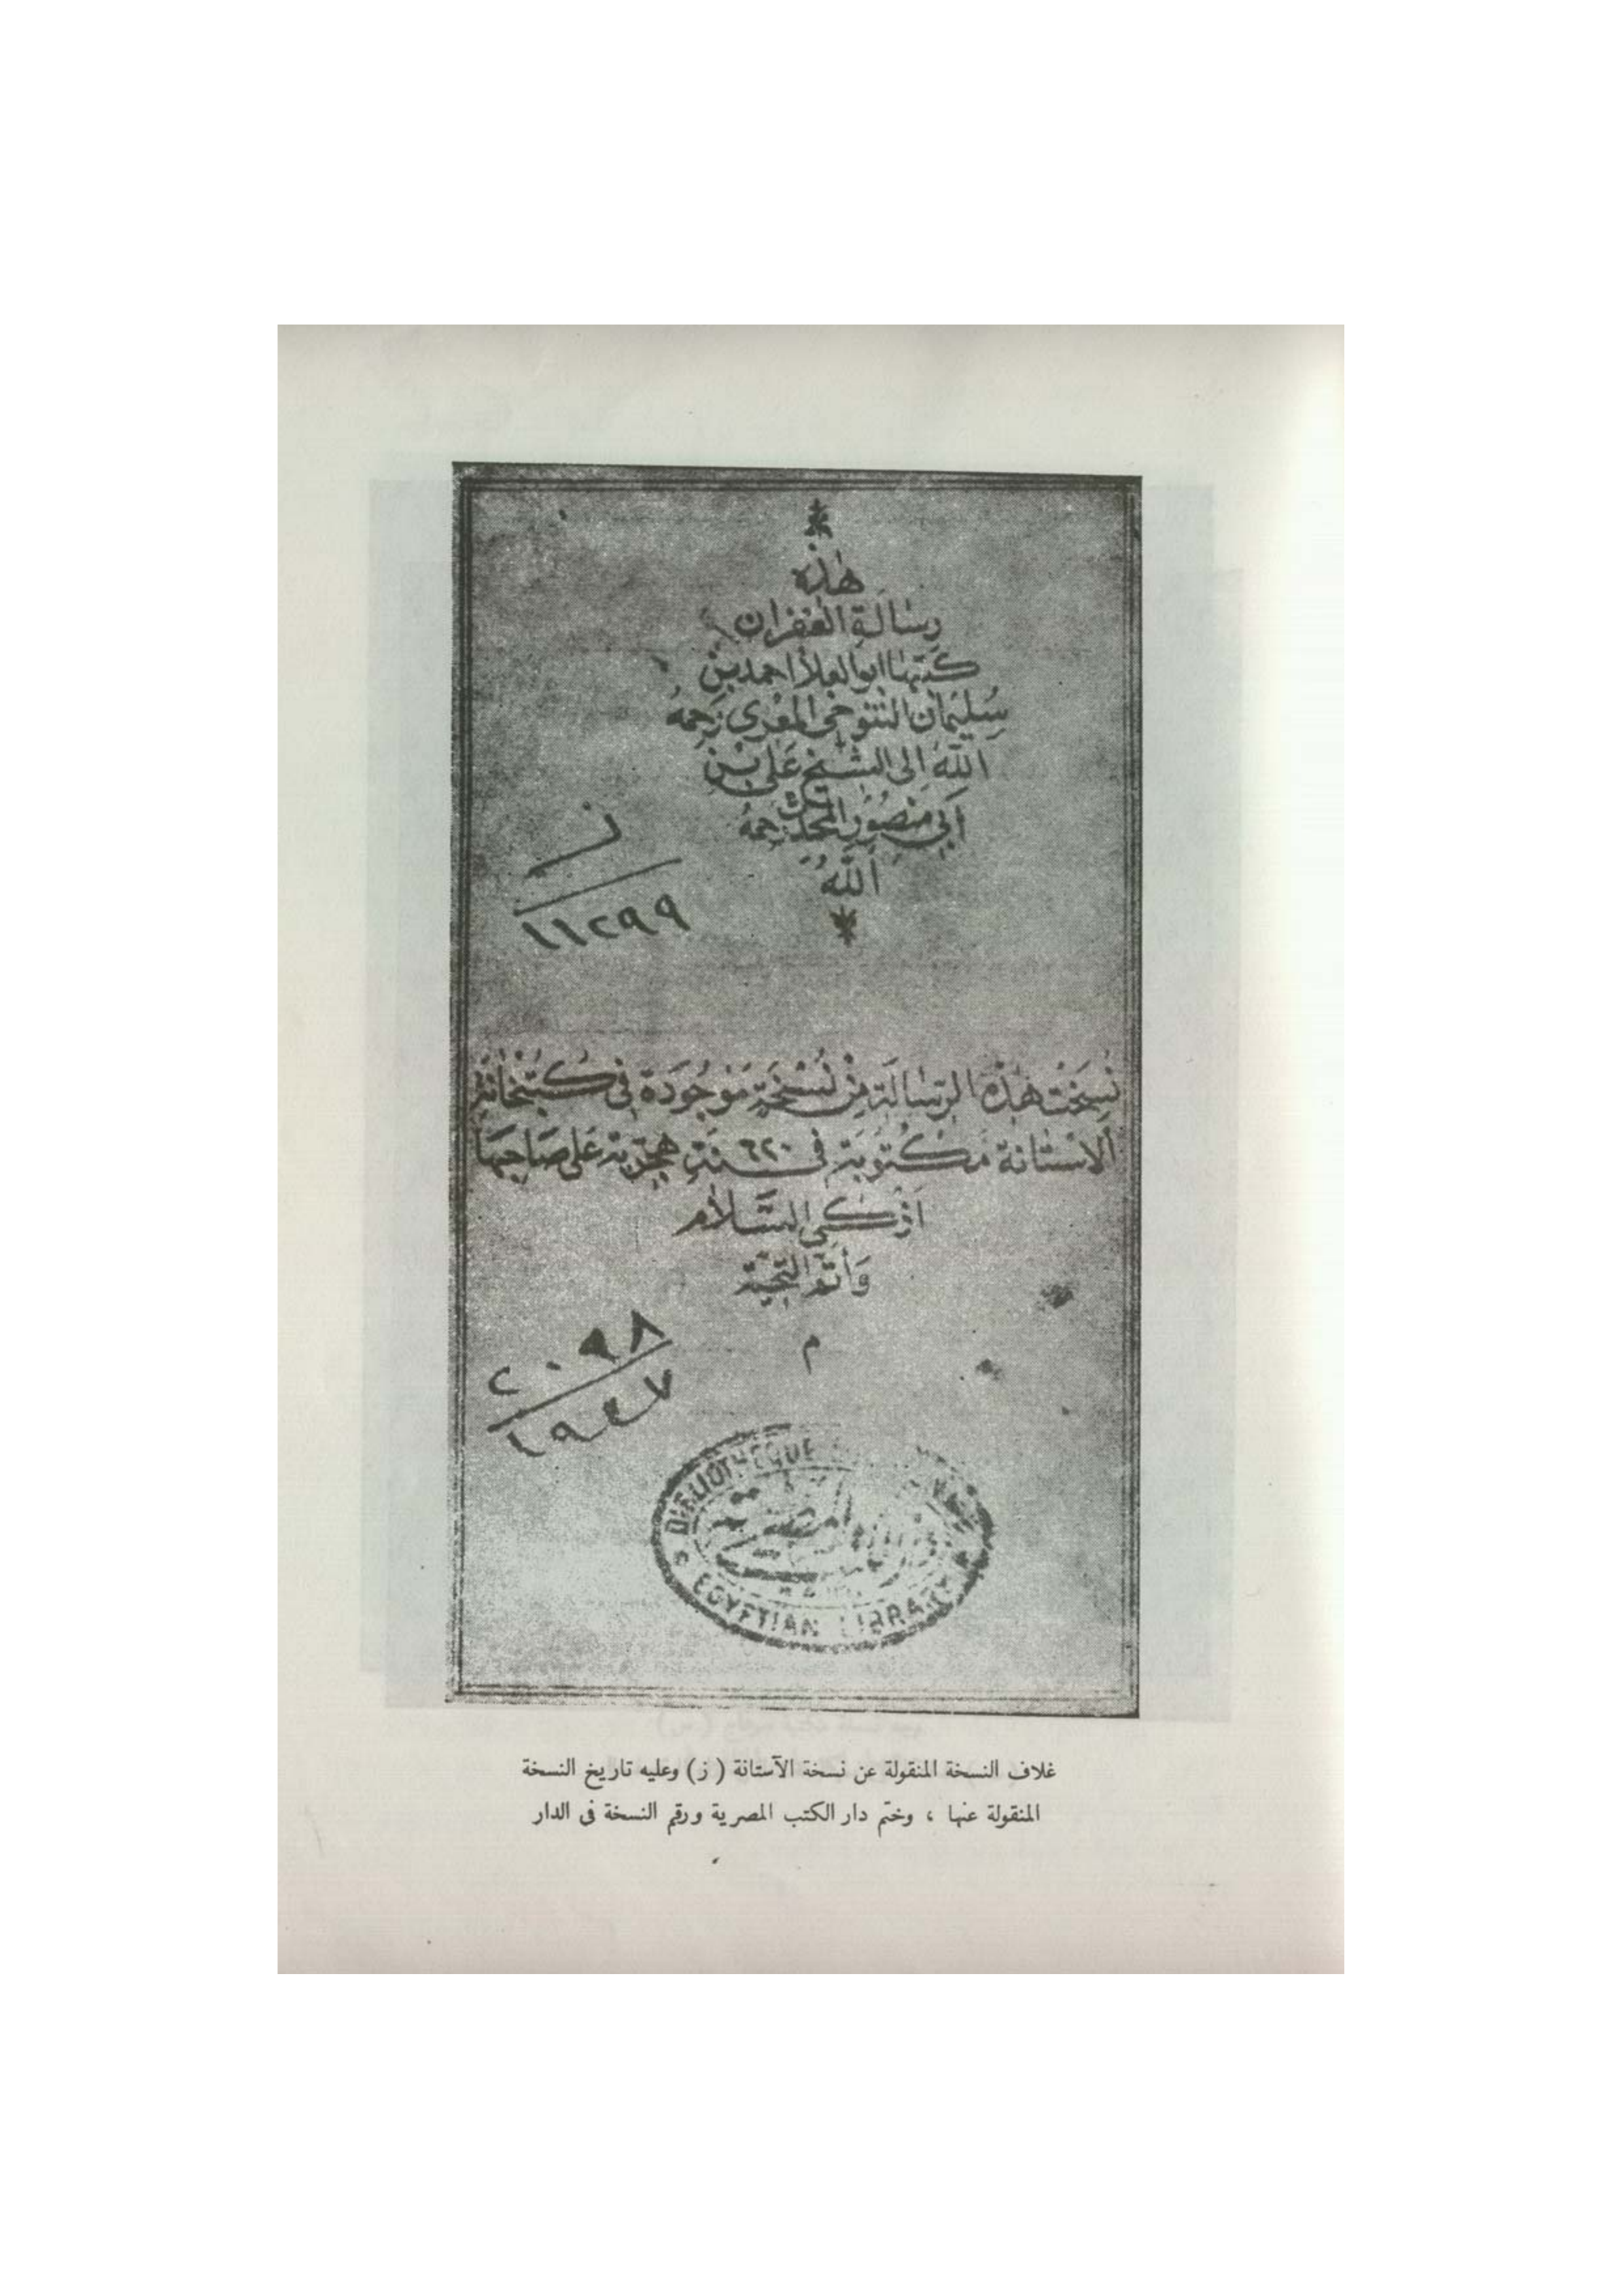 هذه
رِسَالَة الغفران
كتبها ابوالعلا احمد بن
سُليمان التنوخى المعرى رَحمهُ
اللهُ الى الشيخ عَلى بن
أبى منصُور المحدث رحمهُ
اللهُ
ز
١١٢٩٩
نُسِخَت هٰذه الرّسَالَة مِنْ نُسْخَة مَوْجُودَة فى كُتبْخَانة
الاسْتانة مَكتوبَة فى سنة ٦٢٠ هجرية عَلى صَاحِبهَا
ازكى السَّلَام
وَأتم التحية
م
٢٠٩٨
١٩٤٧
BIBLIOTHEQUE
المصرية
EGYPTIAN LIBRARY
غلاف النسخة المنقولة عن نسخة الآستانة ( ز ) وعليه تاريخ النسخة
المنقولة عنها ، وختم دار الكتب المصرية ورقم النسخة فى الدار